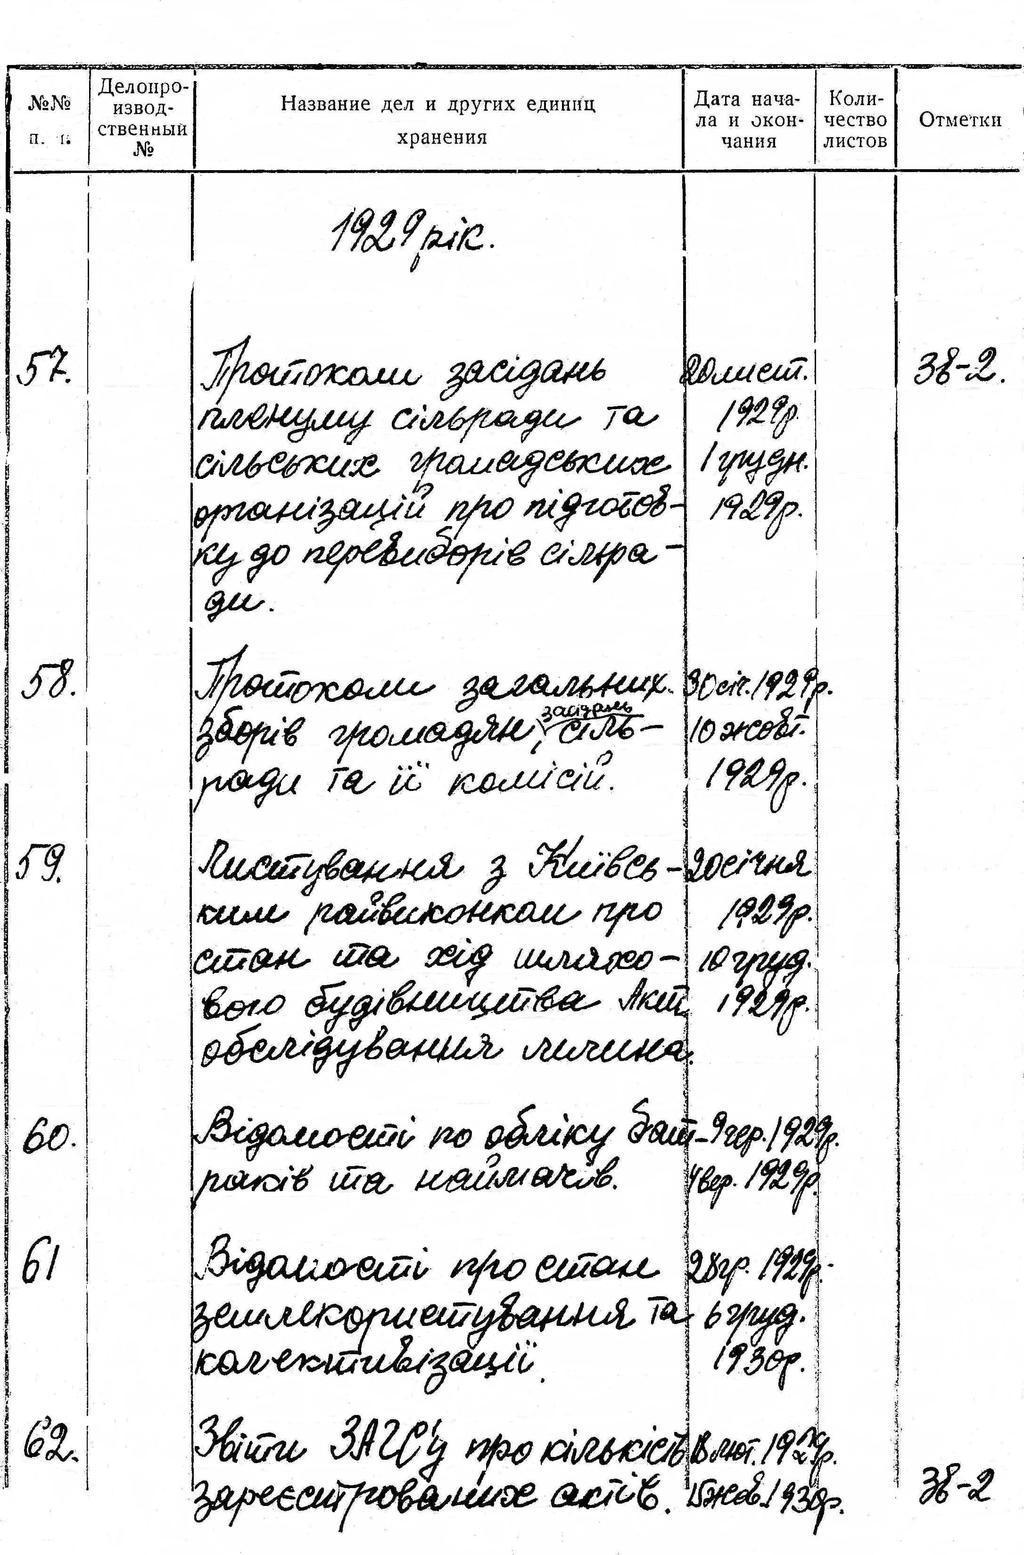 №№ п. п.
Делопроизводственный №
Название дел и других единиц хранения
Дата начала и окончания
Количество листов
Отметки
1929 рік.
57. Протоколи засідань 20 лист. Зв-2.
пленуму сільради та 1929р.
сільських громадських 1 грудн.
організацій про підготов- 1929р.
ку до перевиборів сільра-
ди.
58. Протоколи загальних 30 січ. 1929р.
засідань
зборів громадян, сіль- 10 жовт.
ради та її комісій. 1929р.
59. Листування з Київсь- 20 січня
ким райвиконком про 1929р.
стан та хід шляхо- 10 груд.
вого будівництва Акт 1929р.
обслідування млина.
60. Відомості по обліку бат- 9 чер. 1929р.
раків та наймачів. 4 вер. 1929р.
61 Відомості про стан 28 гр. 1929р.
землекористування та 6 груд.
колективізації. 1930р.
62. Звіти ЗАГС'у про кількість 18 лют. 1929р.
зареєстрованих актів. 15 жов. 1930р. Зв-2